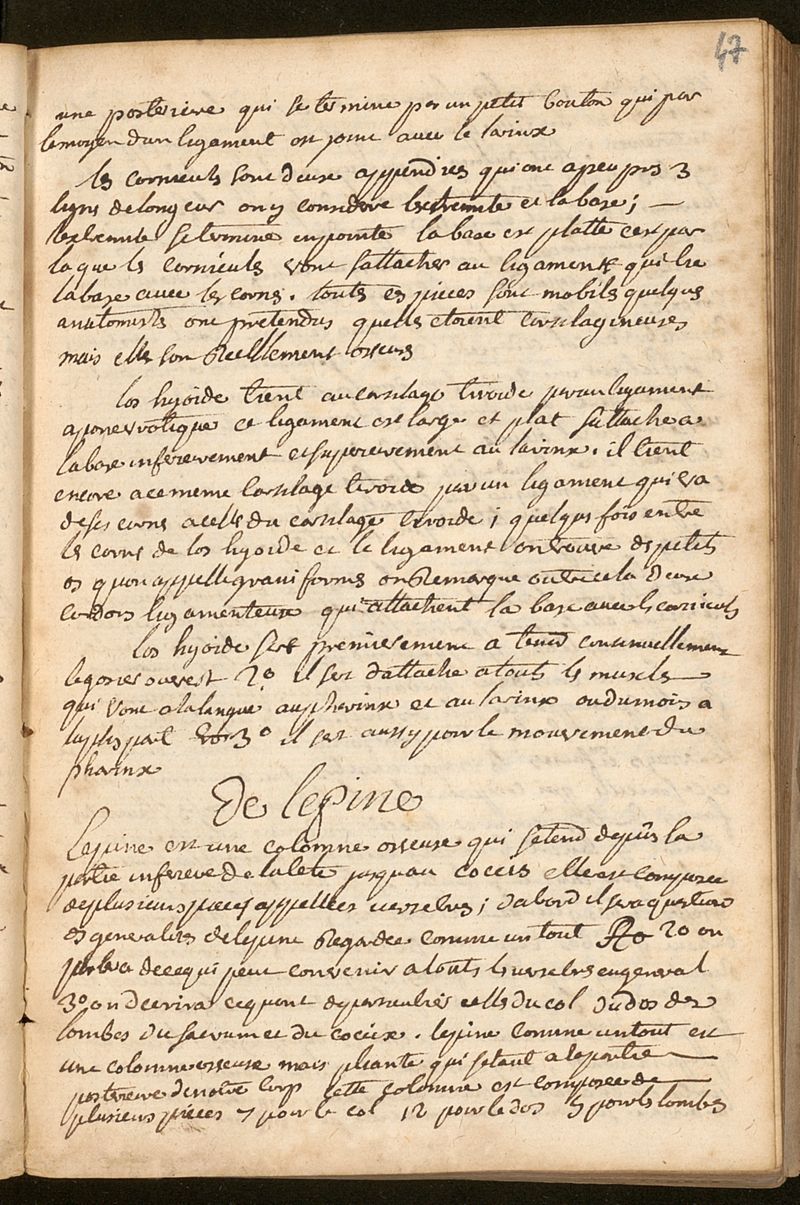 47
une posterieure qui se termine par un petit bouton qui par
le moyen dun ligament est joint avec le larinx
les cornicules sont deux appendices qui ont a peu pres 3
lignes de longeur on y considere lextremité et la base ;
lextremité se termine en pointe la base est platte c'est par
la que ls cornicules vont sattacher au ligament qui lie
la base avec les cornes . touts es pieces sont mobils quelqus
anatomists ont pretendus quells etoient cartilagineuses
mais elles son Reellement osseus
los hyoide tient au cartilage tiroide par un ligament
aponevrotique ce ligament est large et plat sattache a
la base inferieurement et superieurement au larinx . il tient
encore a ce meme Cartilage tiroide par un ligament qui va
de ses corns a cells du cartilage tiroide ; quelqus fois entre
ls corns de los hyoide et le ligament on trouve ds petits
os quon appelle graniformes on Remarque outre cela deux
cordons ligamenteux qui attachent la base avec ls cornicules
los hyoide sert premierement a tenir continuellement
le gosier ouvert 2º il sert dattache a touts ls muscls
qui vont a la langue au pharinx et au larinx ou du mois a
la plus part 3º il sert aussy pour le mouvement du
pharinx
De lepine
Lepine est une colomne osseuse qui setend depuis la
partie inferieure de la tete jusquau coccis elle est composee
de plusieurs pieces appellees verteberes ; dabord il sera question
ds generalités de lepine Regardée comme un tout 2o on
parlera de ce qui peut convenir a touts ls vertebres en general
3º on decrira ce quont de particulier cells du col du dos des
lombes du sacrum et du coccix . lepine comme un tout est
une colomne osseuse mais pliante qui setend a la partie
posterieure de notre corps cette colomne est composée de
plusieurs pieces 7 pour le col 12 pour le dos 5 pour ls lombes